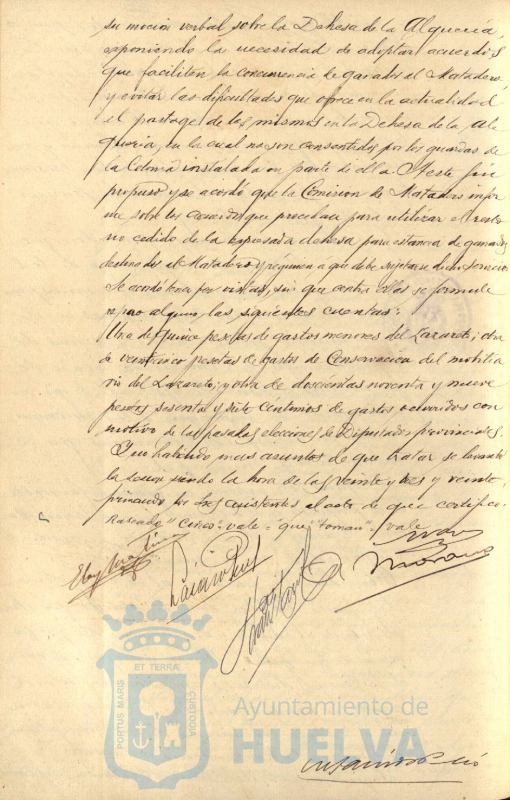 su moción verbal sobre la Dehesa de la Alquería,
exponiendo la necesidad de adoptar acuerdos
que faciliten la concurrencia de ganados al Matadero,
y evitar las dificultades que ofrece en la actualidad
el pastage de los mismos en la Dehesa de la Al-
quería, en la cual no son consentidos por los guardas de
la Colonia instalada en parte de ella. A este fin
propuso y se acordó que la Comisión de Matadero infor-
me sobre los acuerdos que procedan para utilizar el resto
no cedido de la expresada dehesa para estancia de ganados
destinados al Matadero y régimen a que debe sujetarse dicho servicio.
Se acordó tener por vistas, sin que contra ellas se formule
reparo alguno, las siguientes cuentas:
Una de quince pesetas de gastos menores del Lazareto; otra
de veinticinco pesetas de gastos de Conservación del mobilia-
rio del Lazareto; y otra de doscientas noventa y nueve
pesetas sesenta y siete céntimos de gastos ocurridos con
motivo de las pasadas elecciones de Diputados provinciales.
Y no habiendo mas asuntos de que tratar se levantó
la sesión siendo la hora de las veinte y tres y veinte,
firmando los Sres. asistentes al acto de que certifico.
Raspado "Cinco" vale = "que" "toman" vale
Eloy Martín
Moreno
PORTUS MARIS
ET TERRÆ
CUSTODIA
Ayuntamiento de
HUELVA